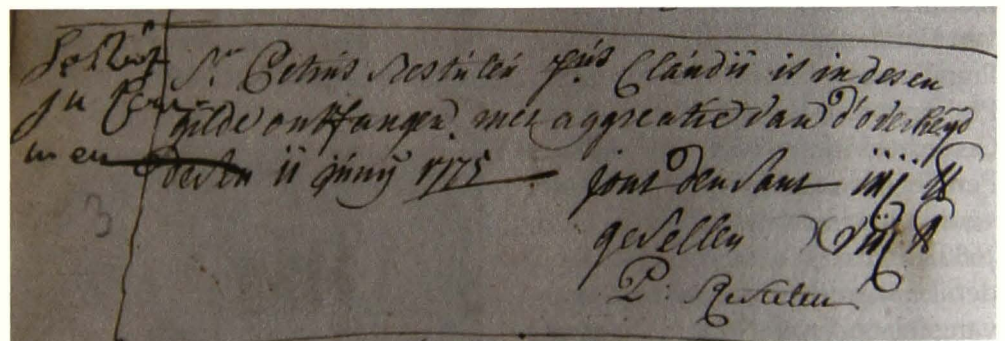 Sr Petrus Restúleú f͠iús Claúdii is in desen
gilde ontfangen. met aggreatie van d'overheyd
desen ii júnij 1775
jont den sant iiij ℔
gesellen viij ℔
P. Restuleu
3